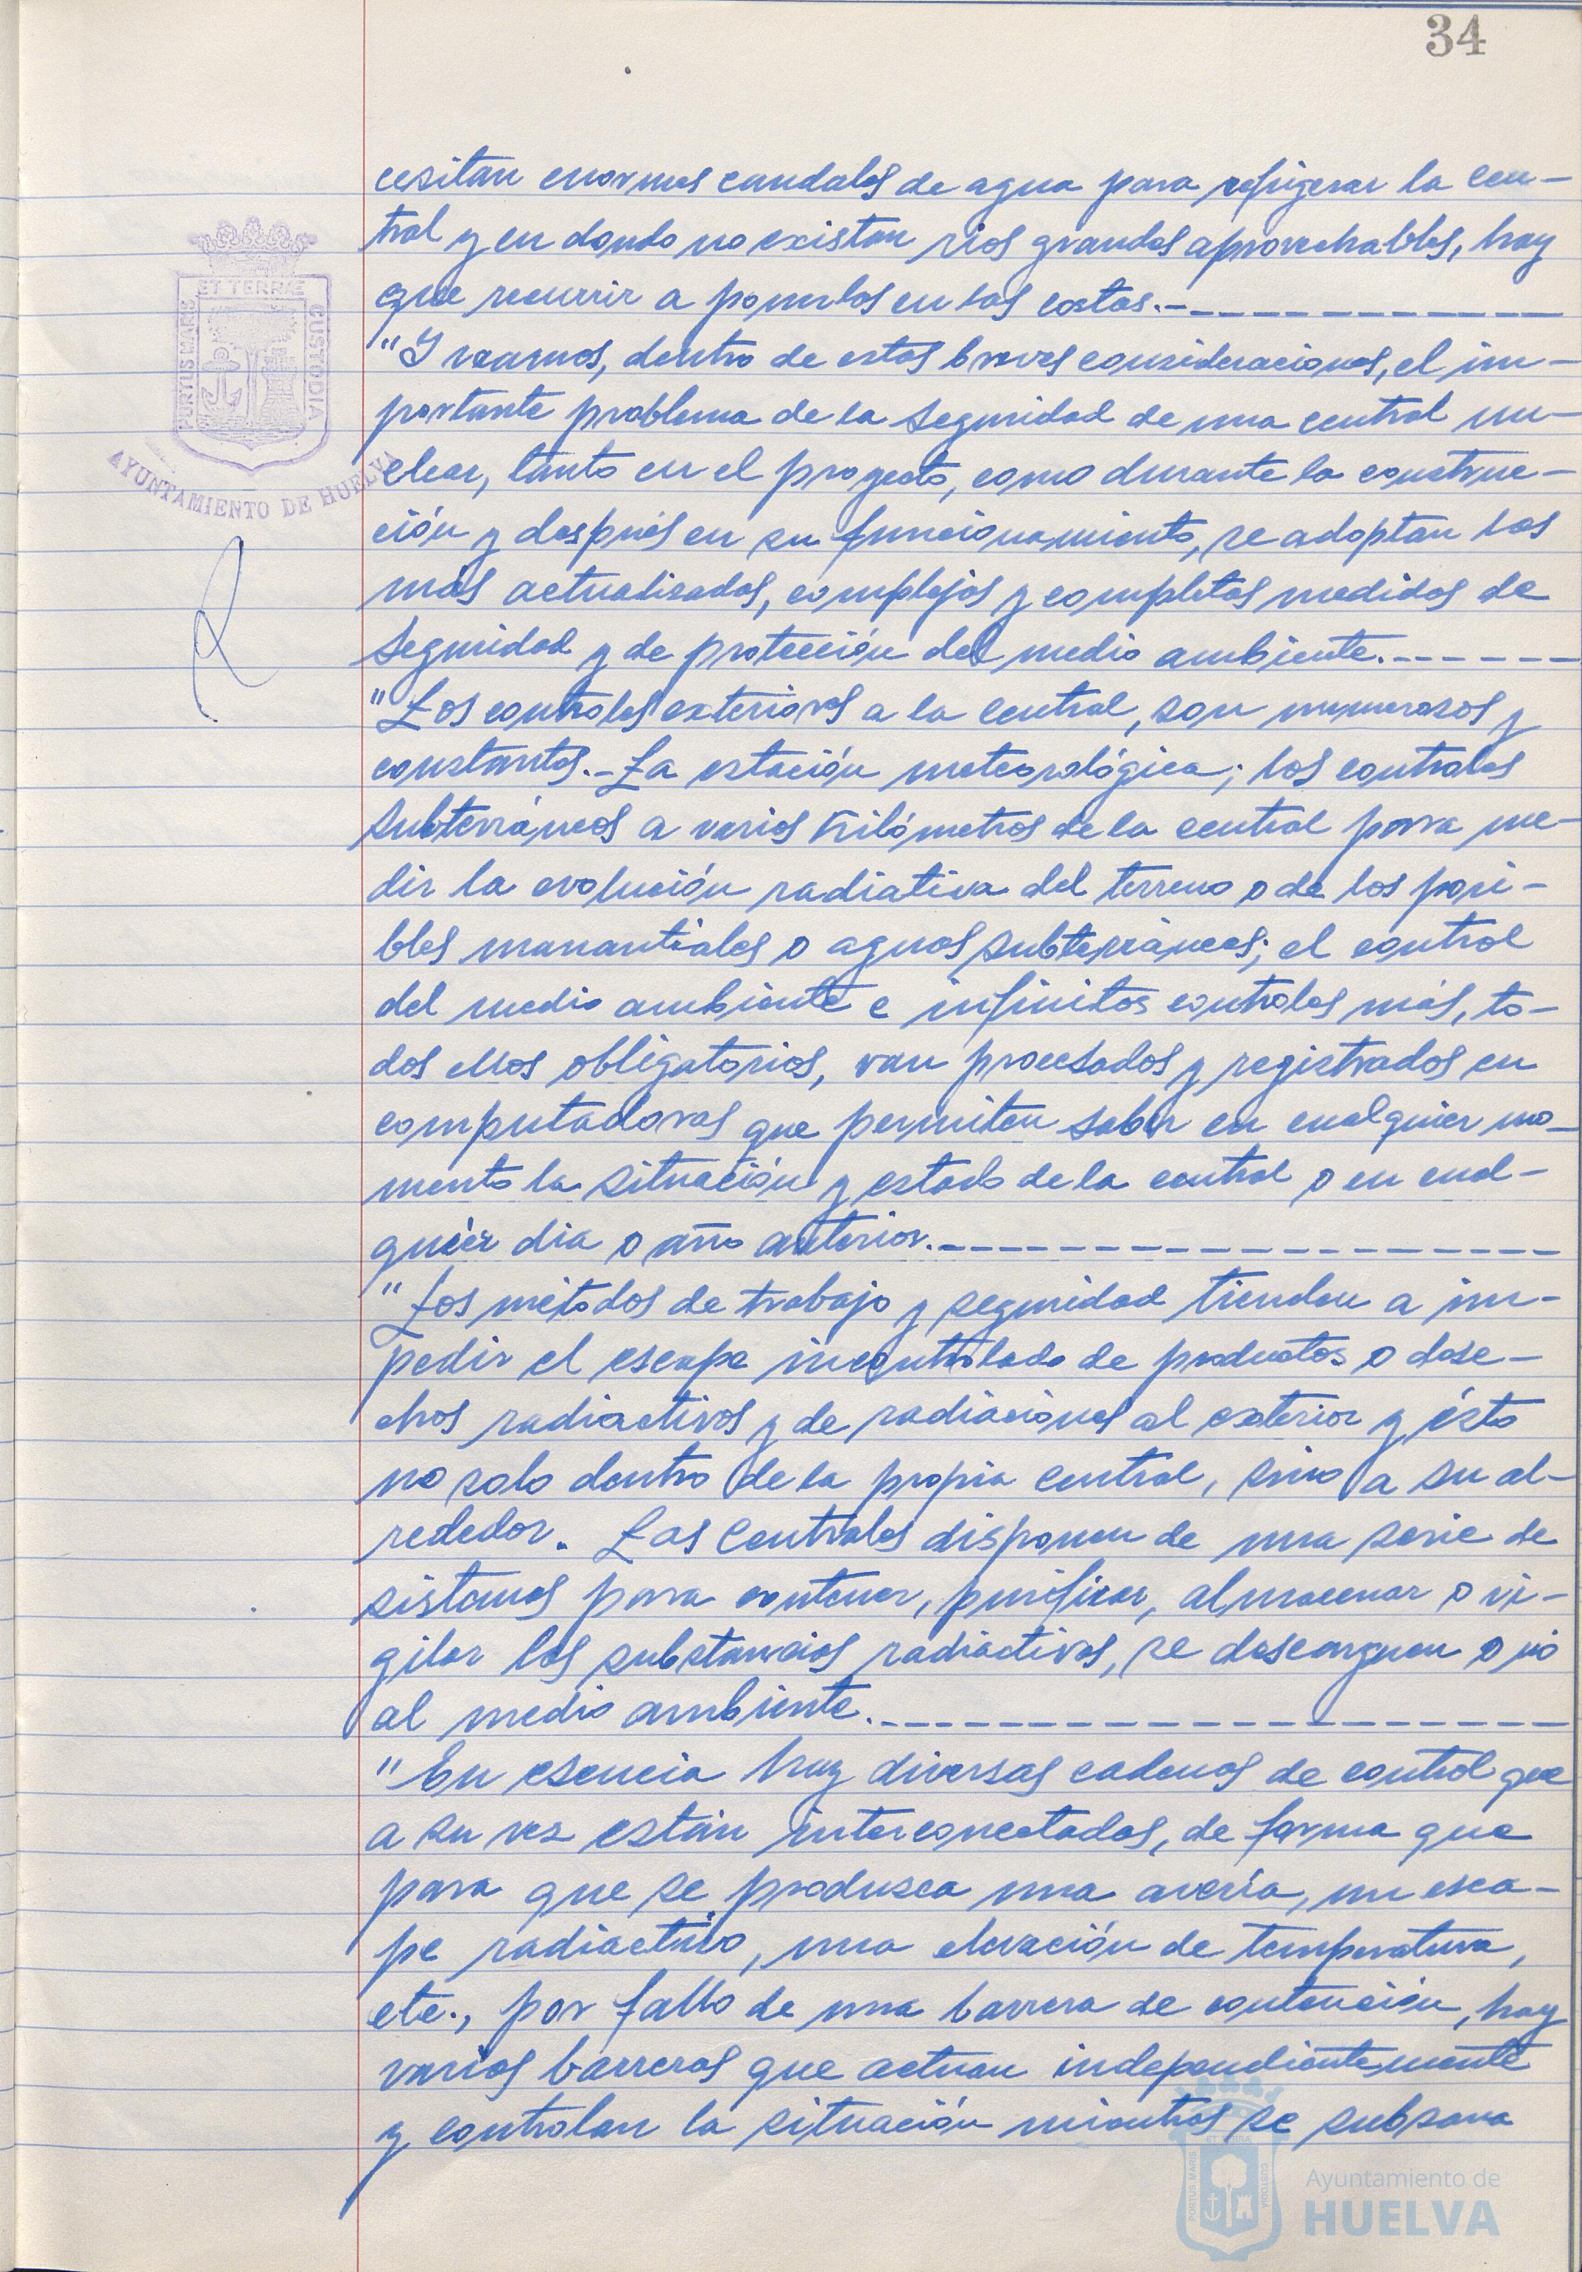 34
cesitan enormes caudales de agua para refrigerar la cen-
tral y en donde no existan rios grandes aprovechables, hay
que recurrir a ponerlos en las costas.-
"Y veamos, dentro de estas breves consideraciones, el im-
portante problema de la seguridad de una central nu-
clear, tanto en el proyecto, como durante la construc-
ción y después en su funcionamiento, se adoptan las
más actualizadas, complejas y completas medidas de
seguridad y de protección del medio ambiente.
"Los controles exteriores a la central, son numerosos y
constantes.- La estación meteorológica; los controles
subterráneos a varios kilómetros de la central para me-
dir la evolución radiativa del terreno o de los posi-
bles manantiales o aguas subterráneas; el control
del medio ambiente e infinitos controles más, to-
dos ellos obligatorios, van procesados y registrados en
computadoras que permiten saber en cualquier mo-
mento la situación y estado de la central o en cual-
quier dia o año anterior.-
"Los métodos de trabajo y seguridad tienden a im-
pedir el escape incontrolado de productos o dese-
chos radiactivos y de radiaciones al exterior y ésto
no solo dentro de la propia central, sino a su al-
rededor. Las Centrales disponen de una serie de
sistemas para contener, purificar, almacenar o vi-
gilar las substancias radiactivas, se descarguen o nó
al medio ambiente.
"En esencia hay diversas cadenas de control que
a su vez están interconectadas, de forma que
para que se produzca una avería, un esca-
pe radiactivo, una elevación de temperatura,
etc., por fallo de una barrera de contención, hay
varias barreras que actuan independientemente
y controlan la situación mientras se subsana
ET TERRAE
PORTUS MARIS
CUSTODIA
AYUNTAMIENTO DE HUELVA
ET TERRAE
PORTUS MARIS
CUSTODIA
Ayuntamiento de
HUELVA